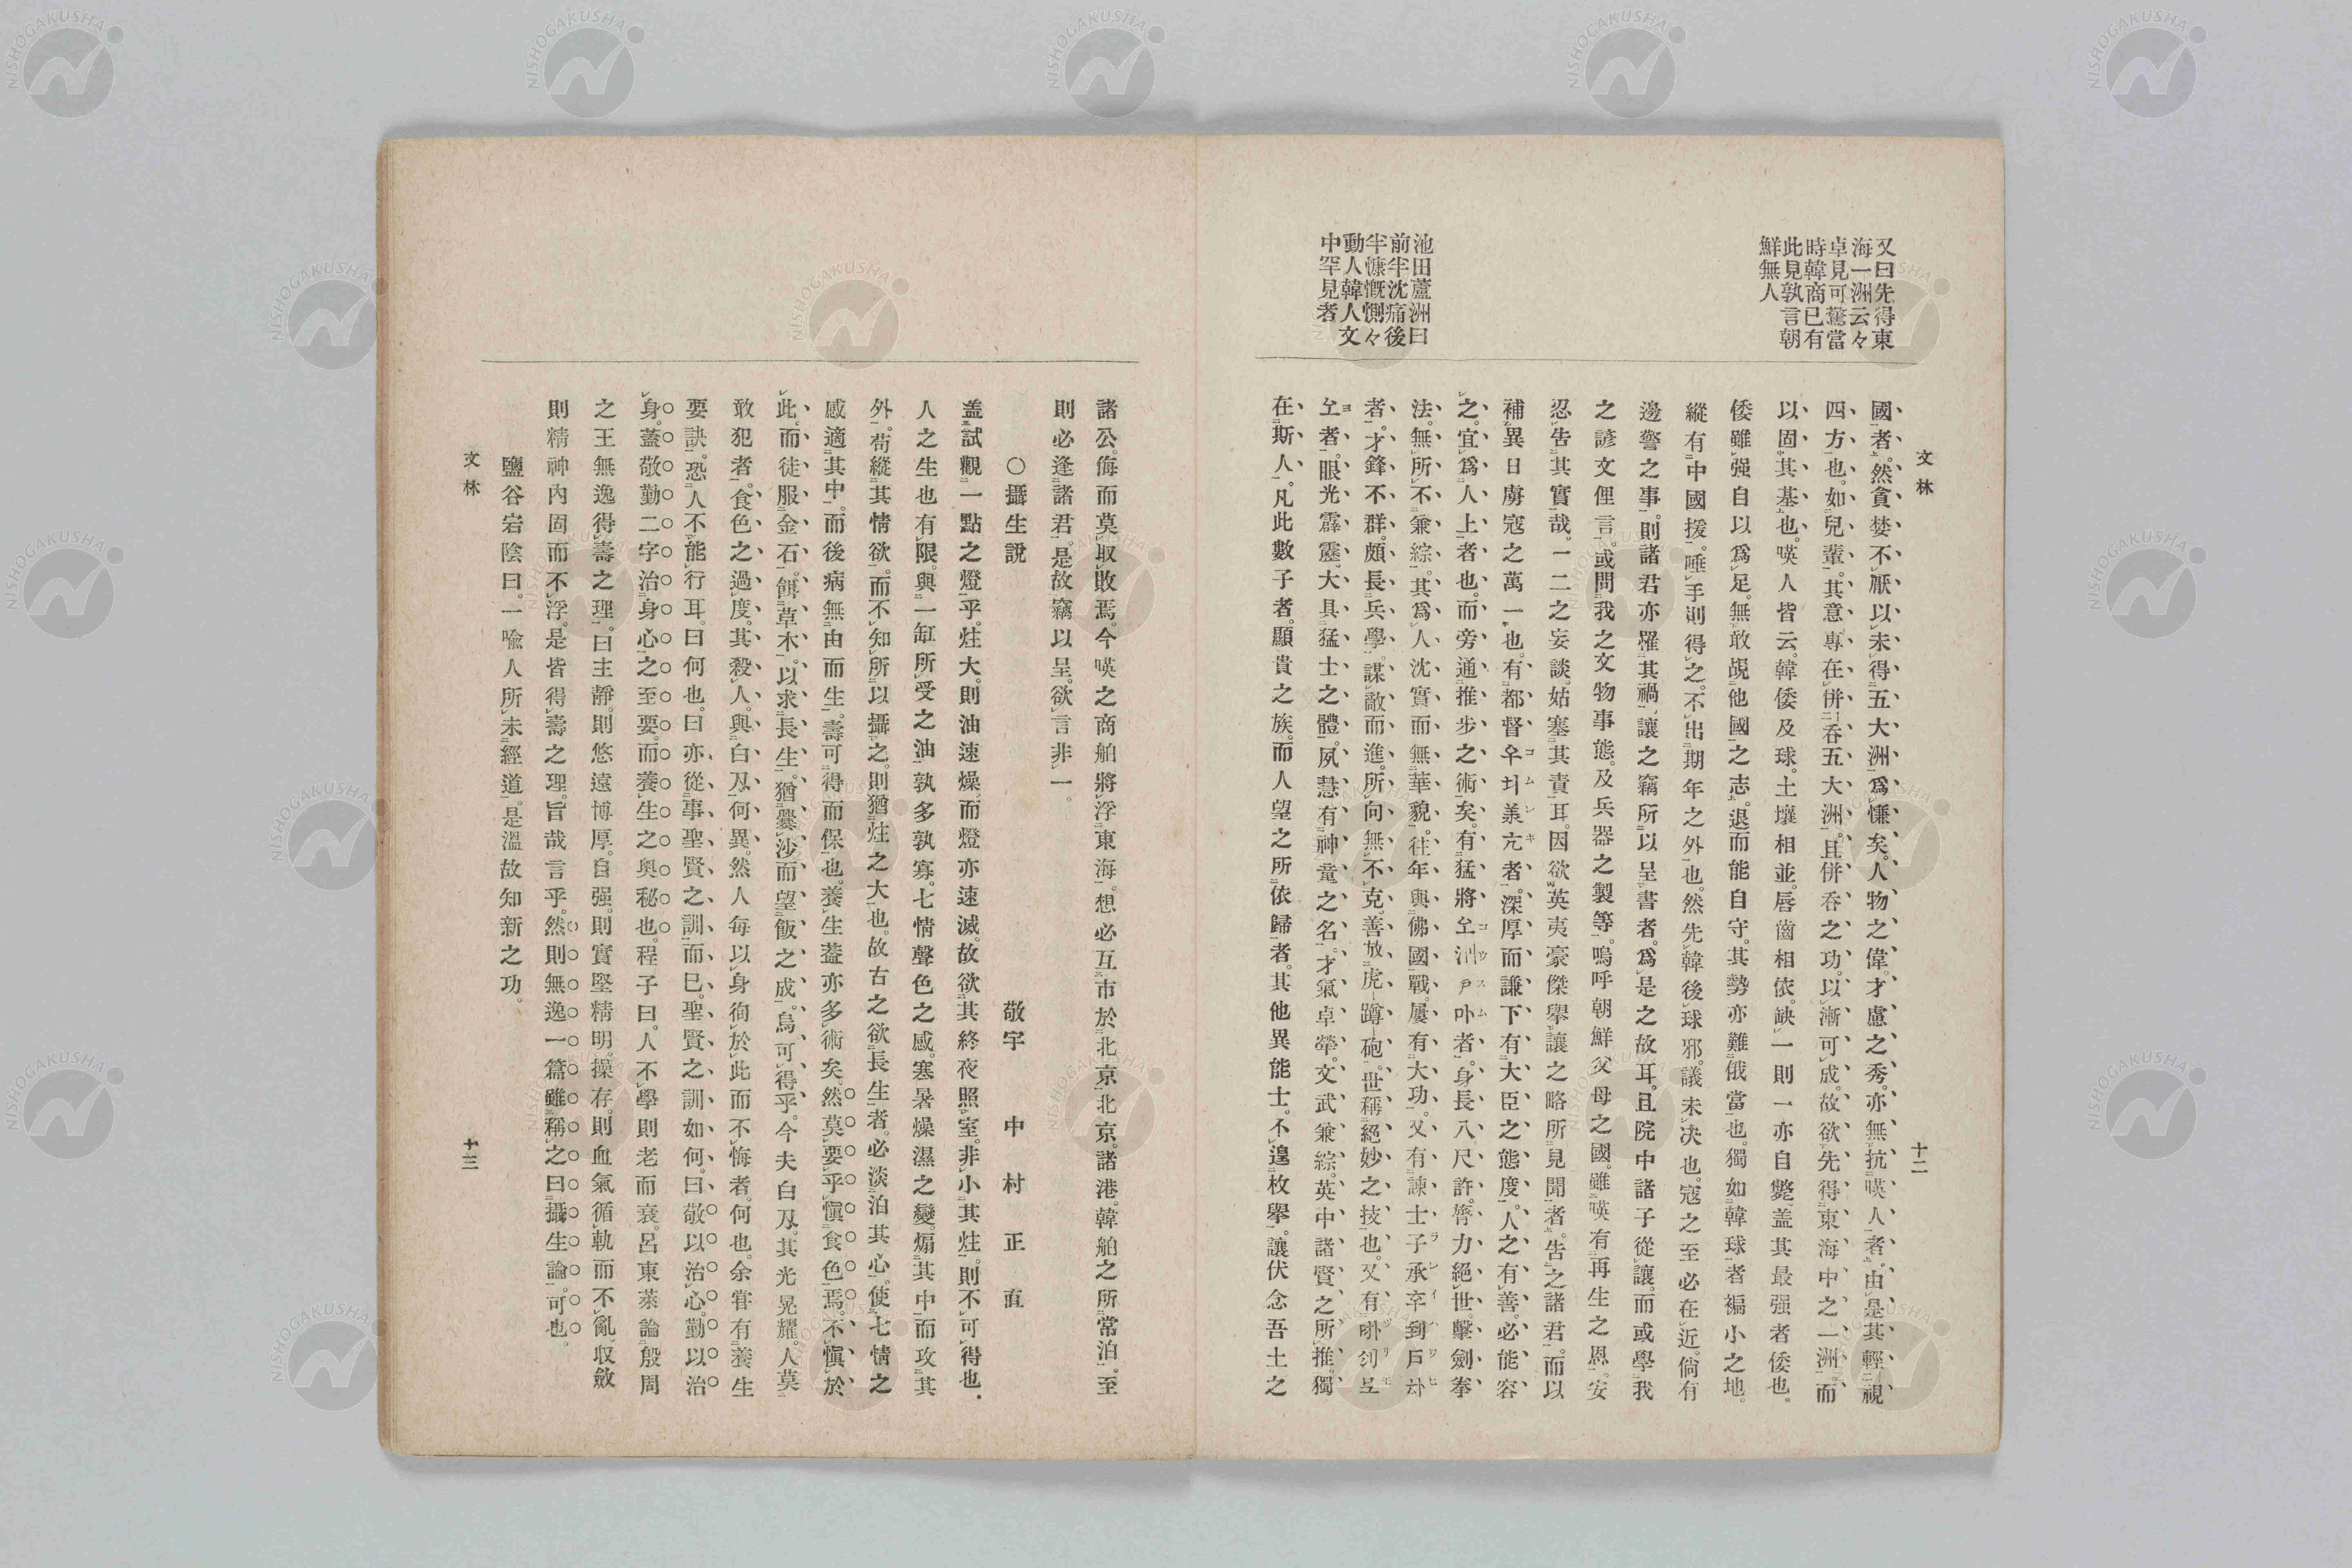 又曰先得東
海一洲云々
卓見可驚當
時韓商已有
此見孰言朝
鮮無人
池田蘆洲曰
前半沈痛後
半慷慨惻々
動人韓人文
中罕見者
文林
十二
國者。然貪婪不厭以未得五大洲爲慊矣。人物之偉。才慮之秀。亦無抗暎人者。由是其輕視
四方也。如兒輩。其意專在併呑五大洲。且併呑之功。以漸可成。故欲先得東海中之一洲。而
以固其基也。暎人皆云。韓倭及球。土壤相並。唇齒相依。缺一則一亦自斃。盖其最强者倭也。
倭雖强自以爲足。無敢覘他國之志。退而能自守。其勢亦難俄當也。獨如韓球者褊小之地。
縱有中國援。唾手則得之。不出期年之外也。然先韓後球邪。議未决也。寇之至必在近。倘有
邊警之事。則諸君亦罹其禍。讓之竊所以呈書者。爲是之故耳。且院中諸子從讓。而或學我
之諺文俚言。或問我之文物事態。及兵器之製等。嗚呼朝鮮父母之國。雖暎有再生之恩。安
忍告其實哉。一二之妄談。姑塞其責耳。因欲英夷豪傑擧讓之略所見聞者。告之諸君。而以
補異日虜寇之萬一也。有都督우더美亢者。深厚而謙下有大臣之態度。人之有善。必能容
之。宜爲人上者也。而旁通推步之術矣。有猛將오洲尹마者。身長八尺許。膂力絕世。擊劍拳
法。無所不兼綜。其爲人沈實而無華貌。往年與佛國戰。屢有大功。又有諫士子承卒到戶화
者。才鋒不群。頗長兵學。謀敵而進。所向無不克。善放虎蹲砲。世稱絕妙之技也。又有
오者。眼光霹靂。大具猛士之體。夙慧有神童之名。才氣卓犖。文武兼綜。英中諸賢之所推。獨
在斯人。凡此數子者。顯貴之族。而人望之所依歸者。其他異能士。不遑枚擧。讓伏念吾土之
諸公。侮而莫取敗焉。今暎之商舶將浮東海。想必互市於北京。北京。諸港。韓舶之所常泊。至
則必逢諸君。是故竊以呈。欲言非一。
○攝生說
敬宇 中村正直
盖試觀一點之燈乎。炷大。則油速燥。而燈亦速滅。故欲其終夜照室。非小其炷。則不可得也。
人之生也有限。與一缸所受之油。孰多孰寡。七情聲色之感。寒暑燥濕之變。煽其中而攻其
外。苟縱其情欲。而不知所以攝之。則猶炷之大也。故古之欲長生者。必淡泊其心。使七情之
感適其中。而後病無由而生。壽可得而保也。養生葢亦多術矣。然莫要乎愼食色焉。不愼於
此。而徒服金石。餌草木。以求長生。猶爨沙而望飯之成。烏可得乎。今夫白刄。其光晃耀。人莫
敢犯者。食色之過度。其殺人。與白刄何異。然人每以身徇於此而不悔者。何也。余甞有養生
要訣。恐人不能行耳。曰何也。曰亦從事聖賢之訓而已。聖賢之訓如何。曰敬以治心。勤以治
身。蓋敬勤二字治身心之至要。而養生之奧秘也。程子曰。人不學則老而衰。呂東萊論殷周
之王無逸得壽之理。曰主靜。則悠遠博厚。自强。則實堅精明。操存。則血氣循軌而不亂。収斂
則精神內固而不浮。是皆得壽之理。旨哉言乎。然則無逸一篇雖稱之曰攝生論。可也。
鹽谷岩陰曰。一喩人所未經道。是溫故知新之功。
文林
十三